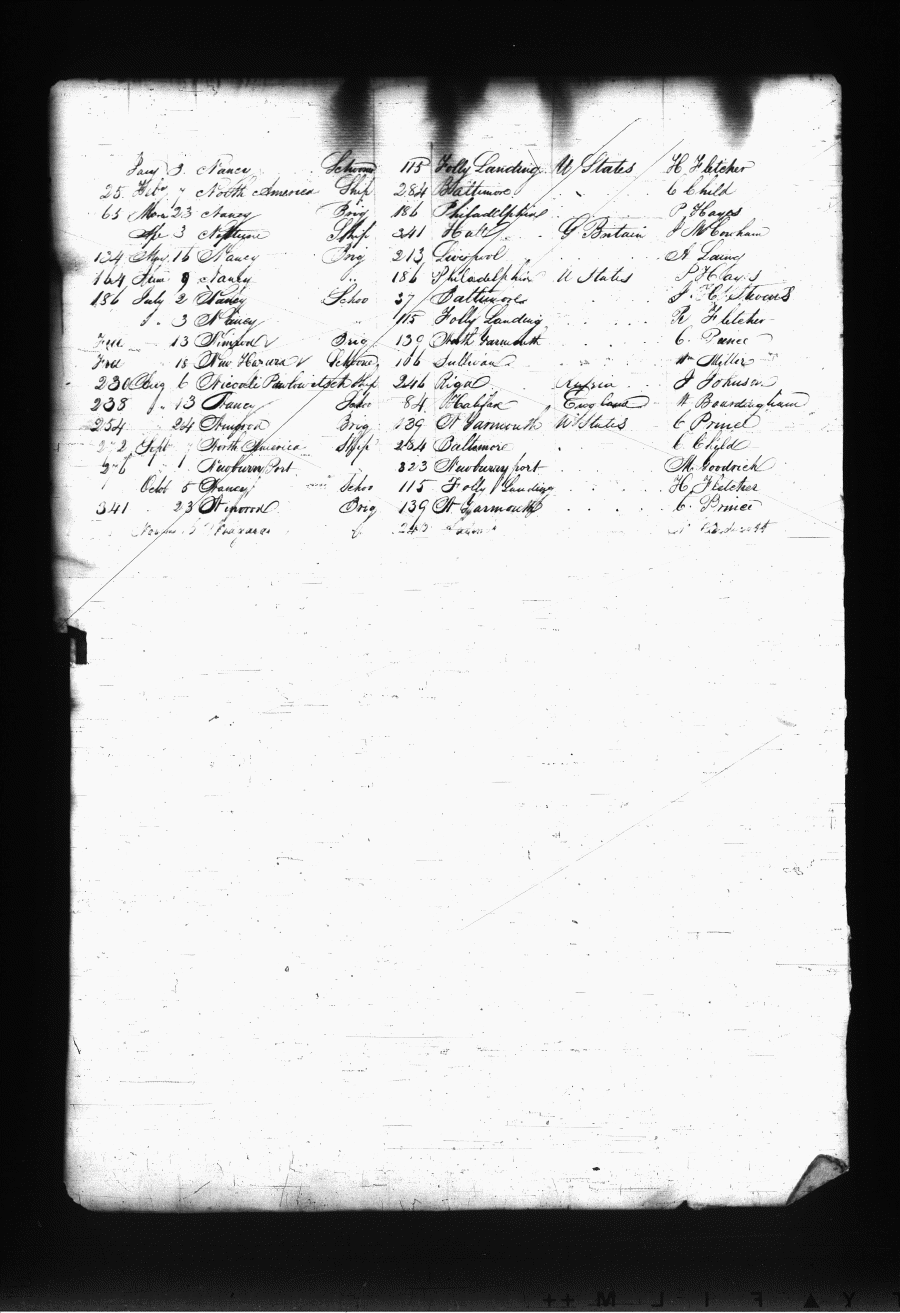 Jany 3 Nancy Schoon 115 Folly Landing U States H Fletcher
25 Feby 7 North America Ship 284 Baltimore C Child
65 Mar 23 Nancy Brig 186 Philadelphia P Hayes
Apr 3 Neptune Ship 341 G Britain J M Corcham
134 May 16 Nancy Brig 213 Liverpool Laing
164 June 9 Nancy 186 Philadelphia U States P Hayes
186 July 2 Nancy Schoo 37 Baltimore J. H. Stevens
3 Nancy 115 Folly Landing R Fletcher
13 Brig 139 North Yarmouth C.
18 Schoone 106 Sullivan Wm Miller
230 Aug 6 Niccoli Pawlowitsch Ship 246 Riga Russia J Johnson
238 13 Nancy Schoo 84 Halifax England W Bourdingham
254 24 Brig 139 N Yarmouth U States C Prince
272 Sept North America Ship 284 Baltimore C Child
276 1 Newburn Port 323 Newburyport M. Goodrich
Octob 5 Nancy Schoo 115 Folly Landing H Fletcher
341 23 Brig 139 N Yarmouth C. Prince
243